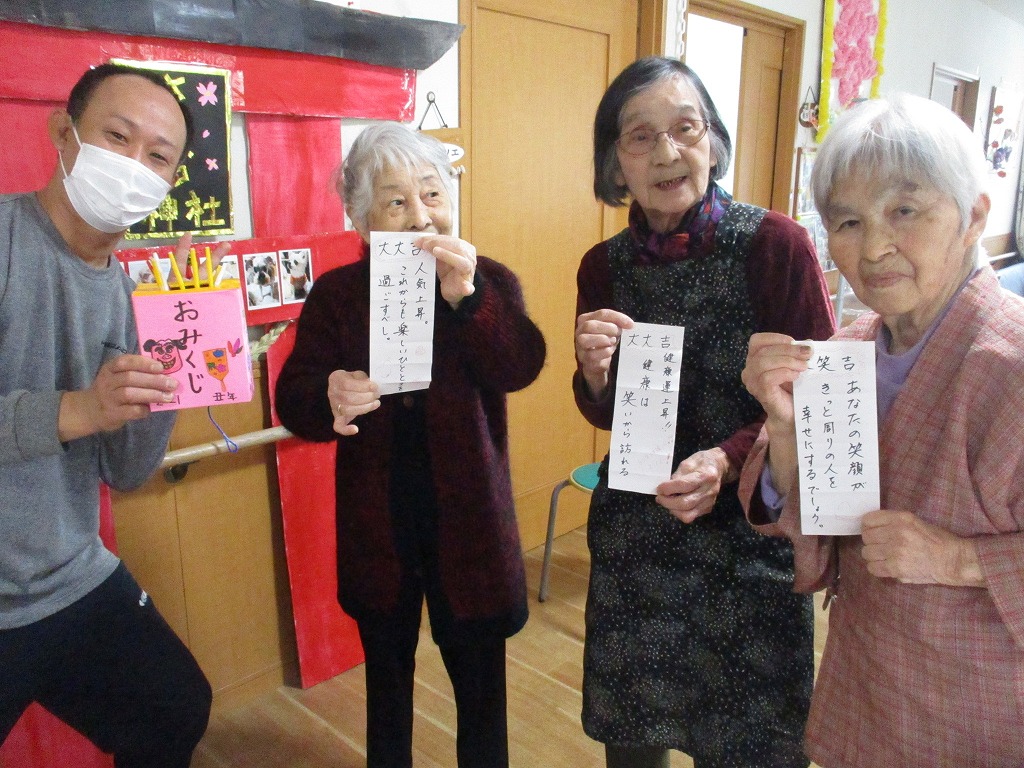 神社
おみくじ
丑年
大大吉
人気上昇。
これからも楽しいひとときを
過ごすべし。
大大吉
健康運上昇!!
健康は
笑いから訪れる
笑吉
あなたの笑顔が
きっと周りの人を
幸せにするでしょう。